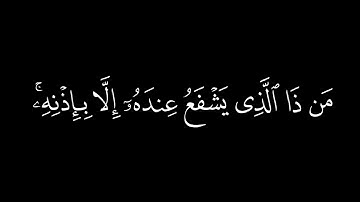 مَن ذَا ٱلَّذِى يَشْفَعُ عِندَهُۥٓ إِلَّا بِإِذْنِهِۦ ۚ